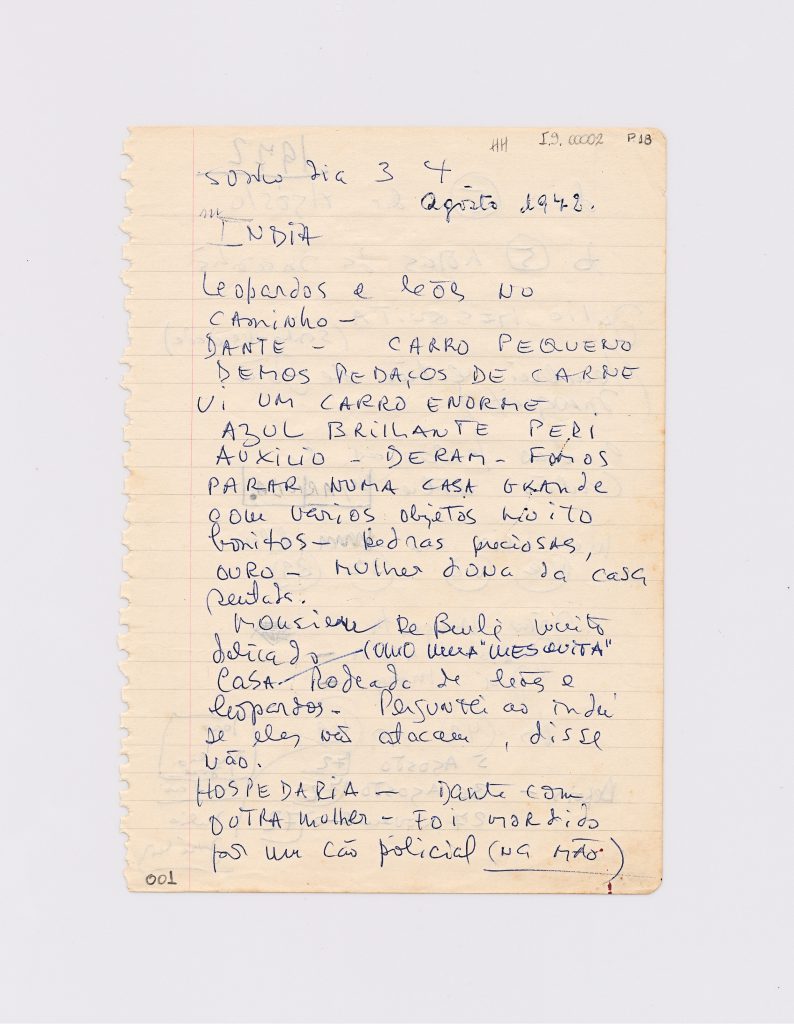 HH I.9. 00002 P 18
sonho dia 3 4
Agosto 1972.
ÍNDIA
Leopardos e leões no
caminho -
DANTE - CARRO PEQUENO
DEMOS PEDAÇOS DE CARNE
Vi UM CARRO ENORME
AZUL BRILHANTE PEDI
AUXILIO - DERAM - FOMOS
PARAR NUMA CASA GRANDE
com varios objetos muito
bonitos - pedras preciosas,
OURO - mulher dona da casa
sentada.
Monsieur De muito
delicado - COMO UMA "MESQUITA"
CASA - Rodeada de leões e
leopardos - Perguntei ao indú
se eles não atacam, disse
não.
HOSPEDARIA - Dante com
OUTRA mulher - FOI mordido
por um cão policial (NA MÃO)
001